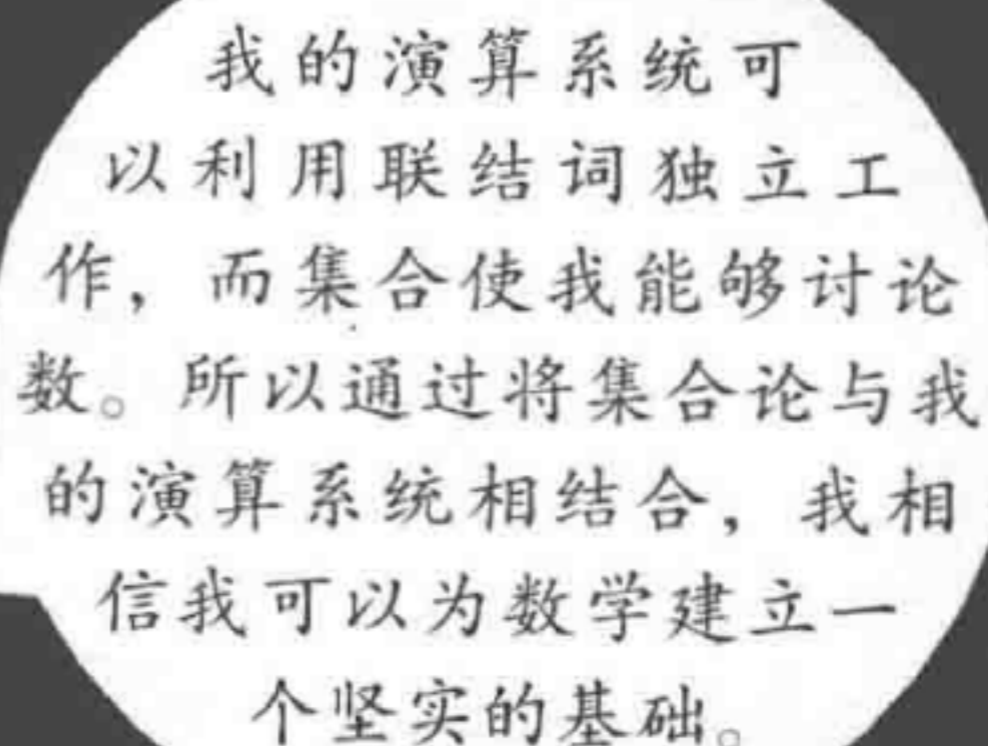 我的演算系统可
以利用联结词独立工
作，而集合使我能够讨论
数。所以通过将集合论与我
的演算系统相结合，我相
信我可以为数学建立一
个坚实的基础。